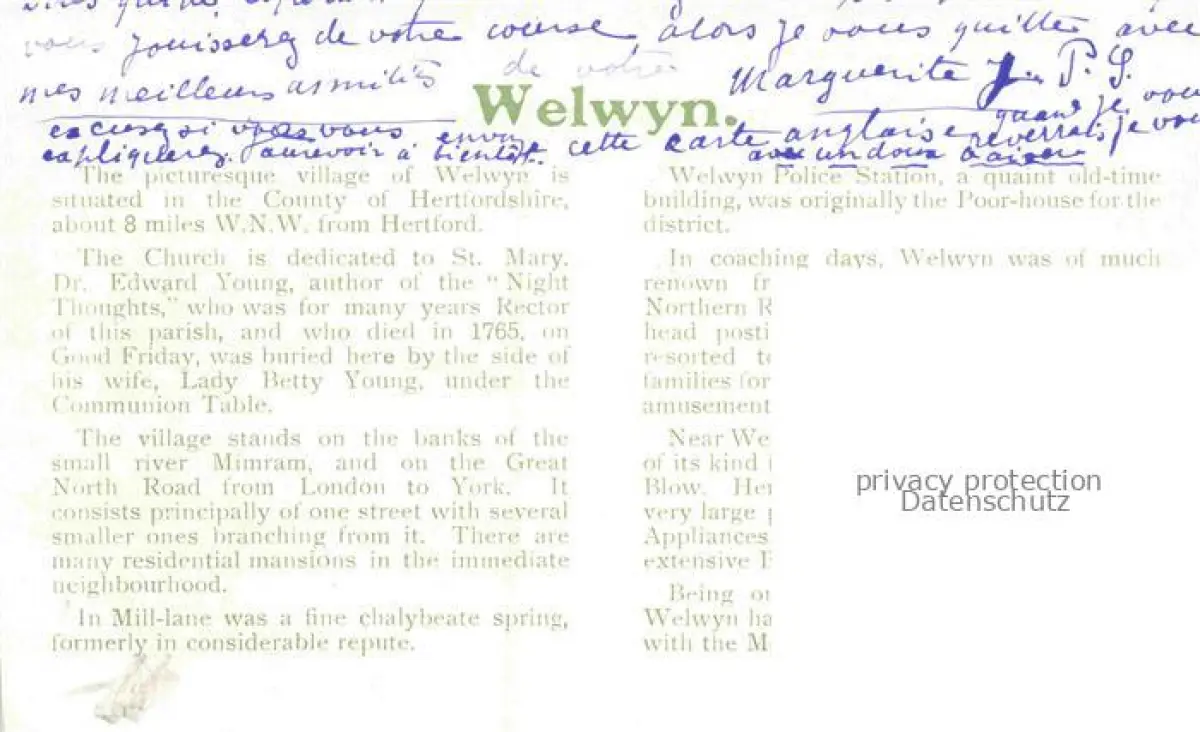 vous jouisserez de votre course alors je vous quitte avec
mes meilleurs amitiés de votre Marguerite J. P. S.
Welwyn.
excusez si vous envoy cette carte anglaise quand je vous
expliquerez. Aurevoir à bientôt. reverrai je vous
avec un doux baiser
The picturesque village of Welwyn is
situated in the County of Hertfordshire,
about 8 miles W.N.W. from Hertford.
The Church is dedicated to St. Mary.
Dr. Edward Young, author of the "Night
Thoughts," who was for many years Rector
of this parish, and who died in 1765, on
Good Friday, was buried here by the side of
his wife, Lady Betty Young, under the
Communion Table.
The village stands on the banks of the
small river Mimram, and on the Great
North Road from London to York. It
consists principally of one street with several
smaller ones branching from it. There are
many residential mansions in the immediate
neighbourhood.
In Mill-lane was a fine chalybeate spring,
formerly in considerable repute.
Welwyn Police Station, a quaint old-time
building, was originally the Poor-house for the
district.
In coaching days, Welwyn was of much
renown fr
Northern R
head posti
resorted t
families for
amusement
Near We
of its kind
Blow. Her
very large
Appliances
extensive
Being on
Welwyn ha
with the M
privacy protection
Datenschutz